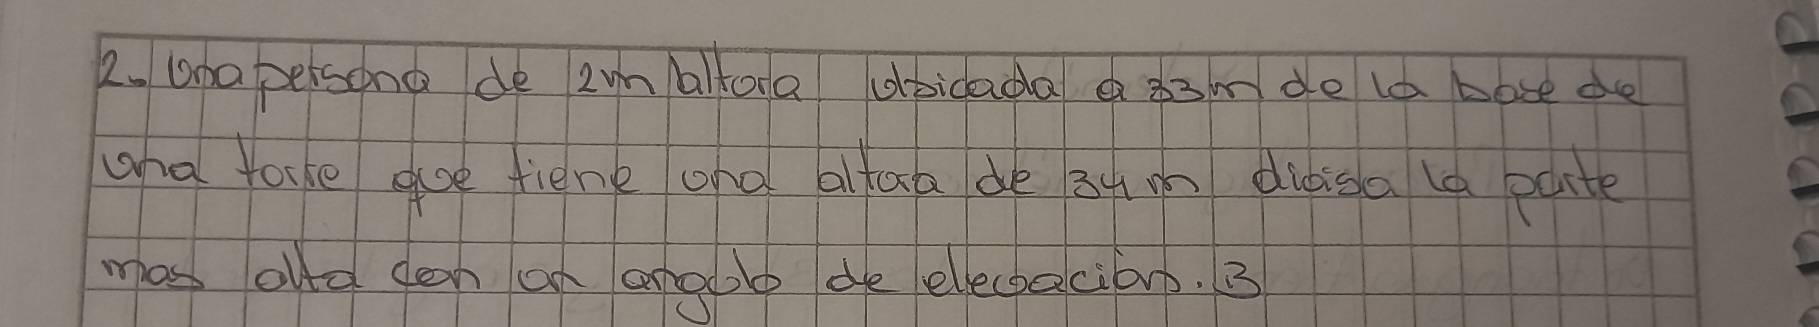 2. Una persona de 2m altura ubicada a 33m de la base de
una torre que tiene una altura de 34m dibisa la parte
mas alta con un angulo de elebacion. B